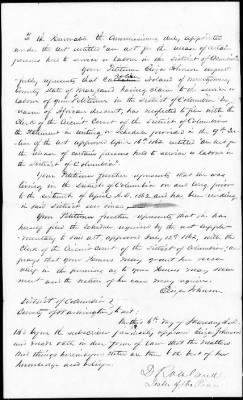 To the Honorable the Commissioners duly appointed
under the act entitled "an act for the release of certain
persons held to service or labor in the District of Columbia"
Your Petitioner Eliza Johnson respect
fully represents that Catharine Noland of Montgomery
County State of Maryland having claim to the service or
labour of your Petitioner in the District of Columbia by
reason of African descent, has neglected to file with the
Clerk of the Circuit Court of the District of Columbia
the statement in writing or schedule provided in the 9th Sec
tion of the act approved April 16th 1862 entitled "an act for
the release of certain persons held to service or labour in
the District of Columbia"
Your Petitioner further represents that she was
living in the District of Columbia on and long prior
to the sixteenth of April A.D. 1862 and has been residing
in said District ever since
Your Petitioner further represents that she has
hereby filed the schedule required by the act supple
mentary to said act approved July 12th 1862, with the
Clerk of the Circuit Court of the District of Columbia, and
prays that your Honors may grant her such
relief in the premises as to your Honors may seem
meet and the nature of her case may require
Eliza Johnson
District of Columbia
County of Washington, to wit:
On this 6th day of
1862 before the subscriber personally appears Eliza Johnson
and made oath in due form of law that the matters
and things herein stated are true to the best of her
knowledge and belief.
D. Rowland
Justice of the Peace